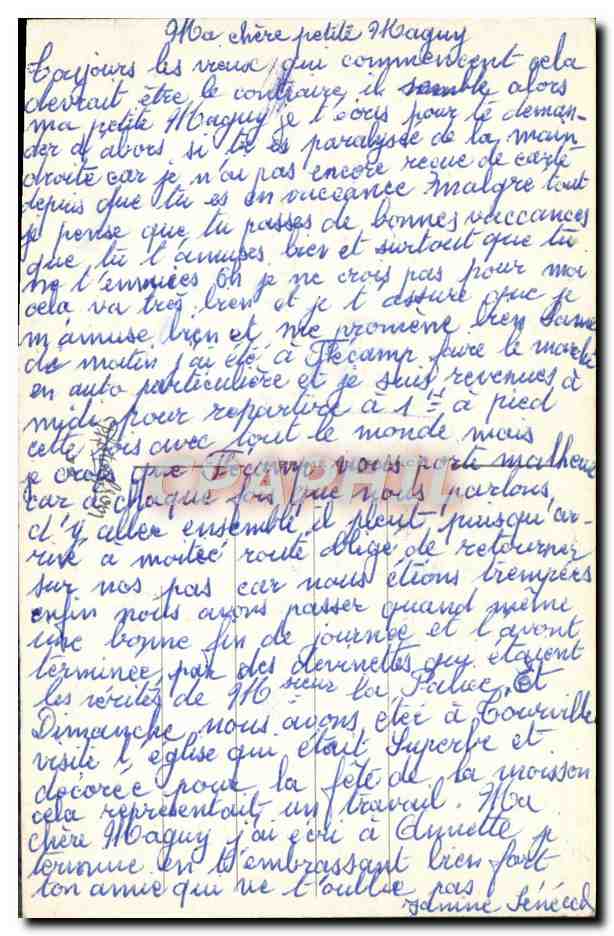 Ma chère petite Maguy
Toujours les vieux qui commencent cela
devrait être le contraire, il semble alors
ma petite Maguy je t'écris pour te deman-
der d'abors si tu es paralysée de la main
droite car je n'ai pas encore recue de carte
depuis que tu es en vaccance malgré tout
je pense que tu passes de bonnes vaccances
que tu t'amuses bien et surtout que tu
ne t'ennuies on je ne crois pas pour moi
cela va très bien et je t'assure que je
m'amuse bien et me promène bien
de matin j'ai été à Fécamp faire le marché
en auto particulière et je suis revenues à
midi pour repartire à 1 H à pied
cette fois avec tout le monde mais
je crois que Fécamp nous porte malheur
car à chaque fois que nous parlons
d'y aller ensemble il pleut, puisqu'ar-
rivé à moitié route obligé de retourner
sur nos pas car nous étions trempés
enfin nous avons passer quand même
une bonne fin de journée et l'avont
terminée par des devinettes qui étaient
les vérités de Msieur la Palice. Et
Dimanche nous avons étée à Tourville
visité l'église qui était Superbe et
décorée pour la fête de la moisson
cela représentait un travail. Ma
chère Maguy j'ai écri à Annette je
termine en t'embrassant bien fort
ton amie qui ne t'oublie pas
Janine Sénécal
CPAPHIL